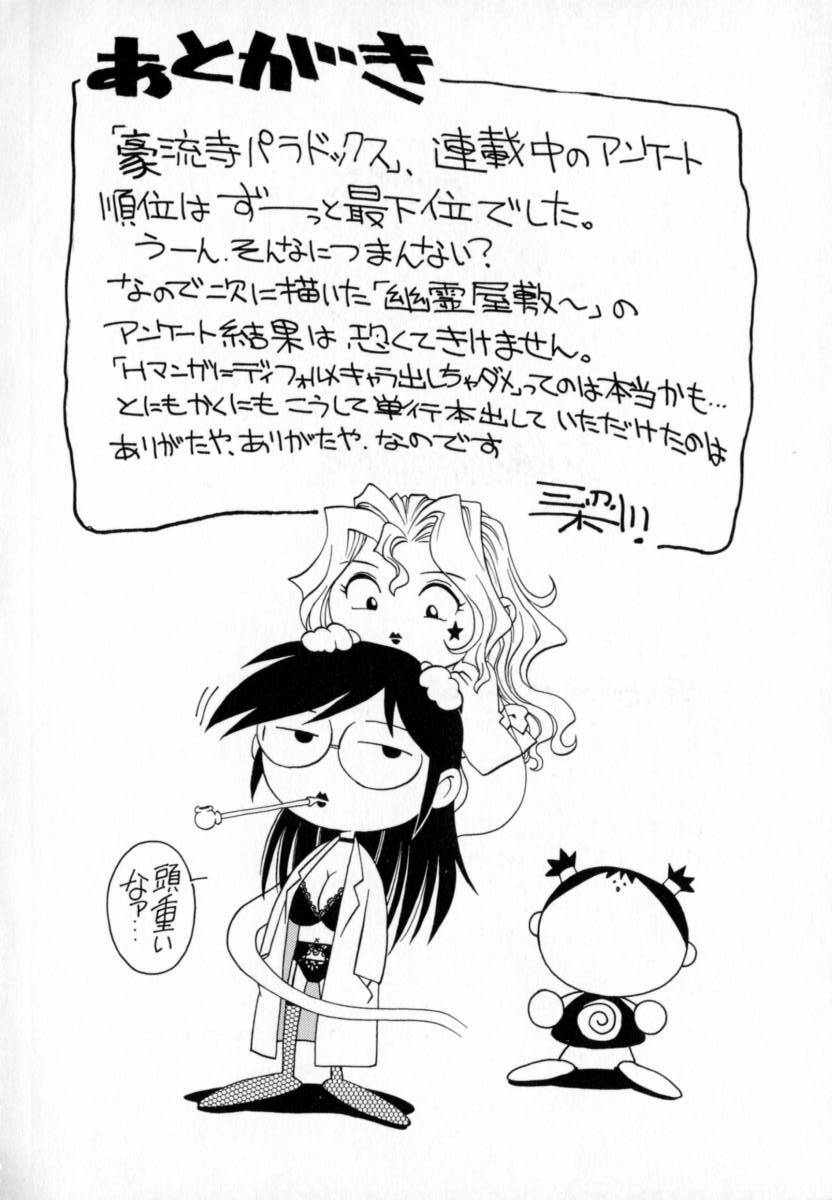 あとがき
「豪流寺パラドックス」、連載中のアンケート
順位は ずーーっと最下位でした。
うーん.そんなにつまんない?
なので二次に描いた「幽霊屋敷〜」の
アンケート結果は、恐くてきけません。
「Hマンガにディフォルメキャラ出しちゃダメ」ってのは本当かも…
とにもかくにも こうして単行本出して いただけたのは
ありがたや、ありがたや、なのです
頭重い
なァ…